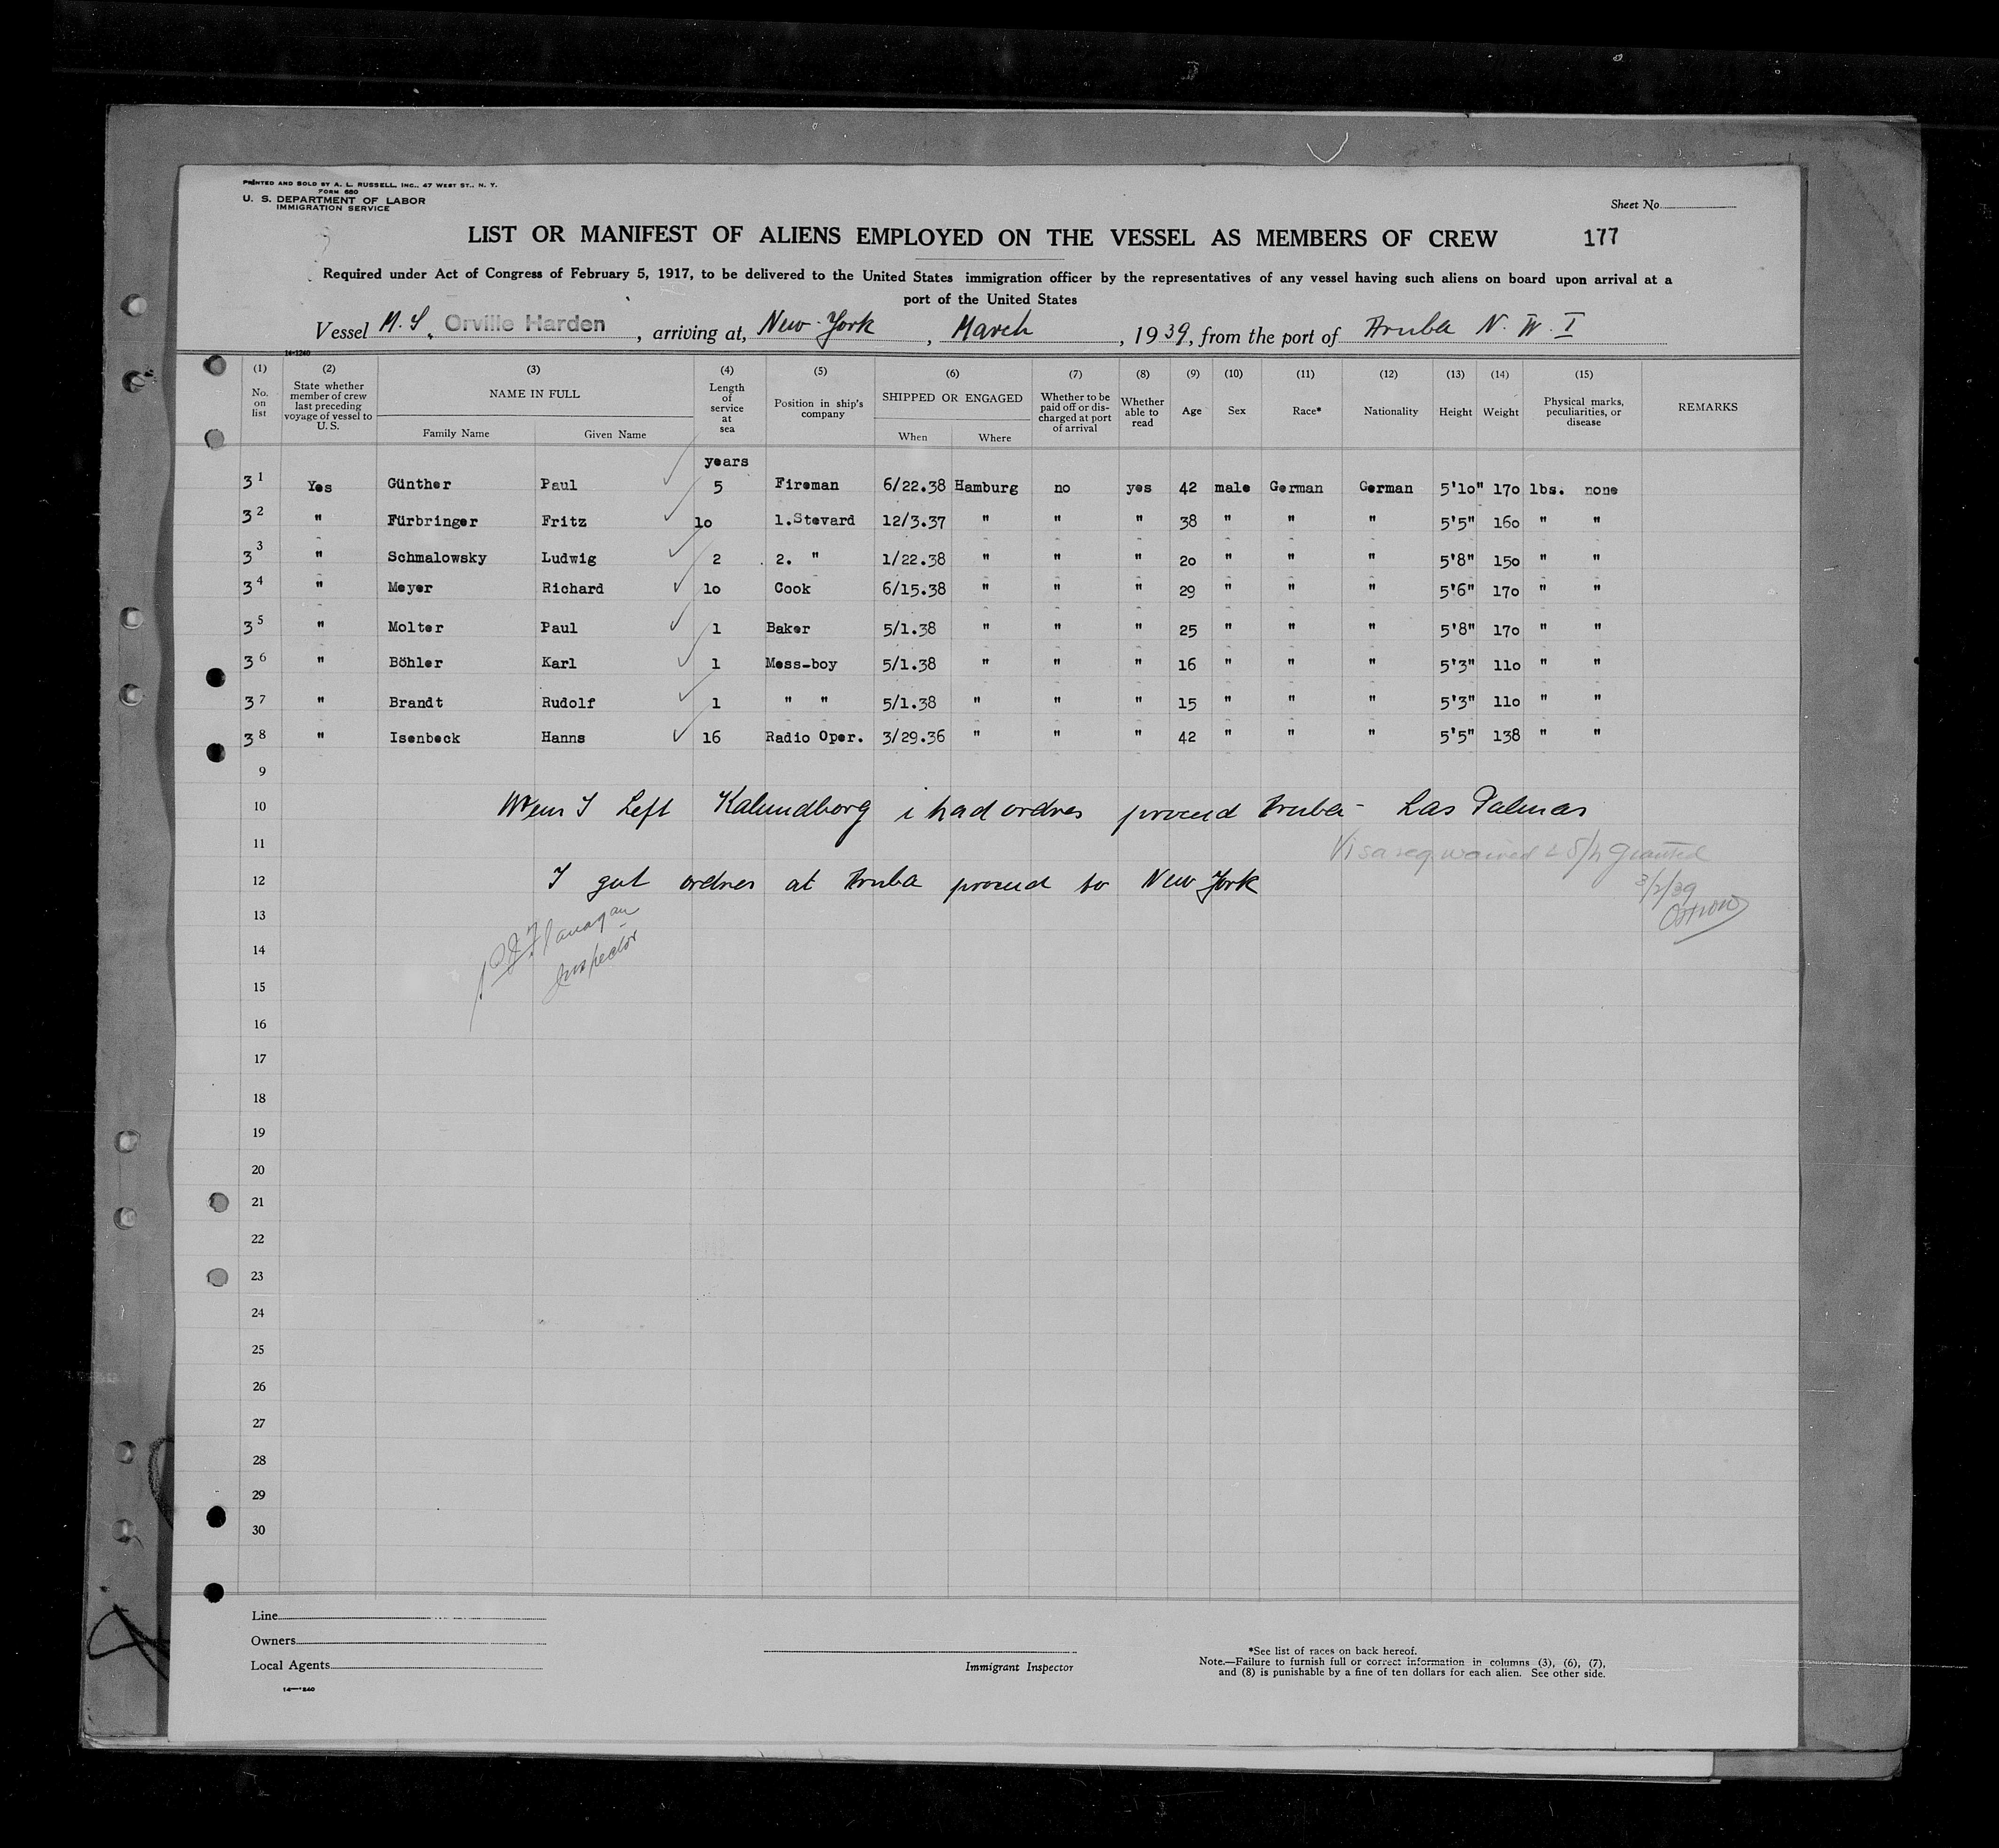 PRINTED AND SOLD BY A. L. RUSSELL, INC., 47 WEST ST., N. Y.
FORM 680
U. S. DEPARTMENT OF LABOR
IMMIGRATION SERVICE
Sheet No.
LIST OR MANIFEST OF ALIENS EMPLOYED ON THE VESSEL AS MEMBERS OF CREW 177
Required under Act of Congress of February 5, 1917, to be delivered to the United States immigration officer by the representatives of any vessel having such aliens on board upon arrival at a
port of the United States
Vessel M. S. Orville Harden, arriving at, New-York, March, 1939, from the port of Aruba N. W. I
14-1240
(1) No. on list
(2) State whether member of crew last preceding voyage of vessel to U. S.
(3) NAME IN FULL
Family Name Given Name
(4) Length of service at sea
(5) Position in ship's company
(6) SHIPPED OR ENGAGED
When Where
(7) Whether to be paid off or discharged at port of arrival
(8) Whether able to read
(9) Age
(10) Sex
(11) Race*
(12) Nationality
(13) Height
(14) Weight
(15) Physical marks, peculiarities, or disease
REMARKS
years
31 Yes Günther Paul 5 Fireman 6/22.38 Hamburg no yes 42 male German German 5'1o" 17o lbs. none
32 " Fürbringer Fritz 1o 1.Stevard 12/3.37 " " " 38 " " " 5'5" 16o " "
33 " Schmalowsky Ludwig 2 2. " 1/22.38 " " " 2o " " " 5'8" 15o " "
34 " Meyer Richard 1o Cook 6/15.38 " " " 29 " " " 5'6" 17o " "
35 " Molter Paul 1 Baker 5/1.38 " " " 25 " " " 5'8" 17o " "
36 " Böhler Karl 1 Mess-boy 5/1.38 " " " 16 " " " 5'3" 11o " "
37 " Brandt Rudolf 1 " " 5/1.38 " " " 15 " " " 5'3" 11o " "
38 " Isenbeck Hanns 16 Radio Oper. 3/29.36 " " " 42 " " " 5'5" 138 " "
9
10 When I Left Kalundborg i had ordres proceed Aruba - Las Palmas
11 Visa req waived & S/L granted
12 I got ordres at Aruba proceed to New York
3/2/39
13
Flanagan
14
Inspector
15
16
17
18
19
20
21
22
23
24
25
26
27
28
29
30
Line
Owners
Local Agents
Immigrant Inspector
*See list of races on back hereof.
Note.—Failure to furnish full or correct information in columns (3), (6), (7),
and (8) is punishable by a fine of ten dollars for each alien. See other side.
14—1240